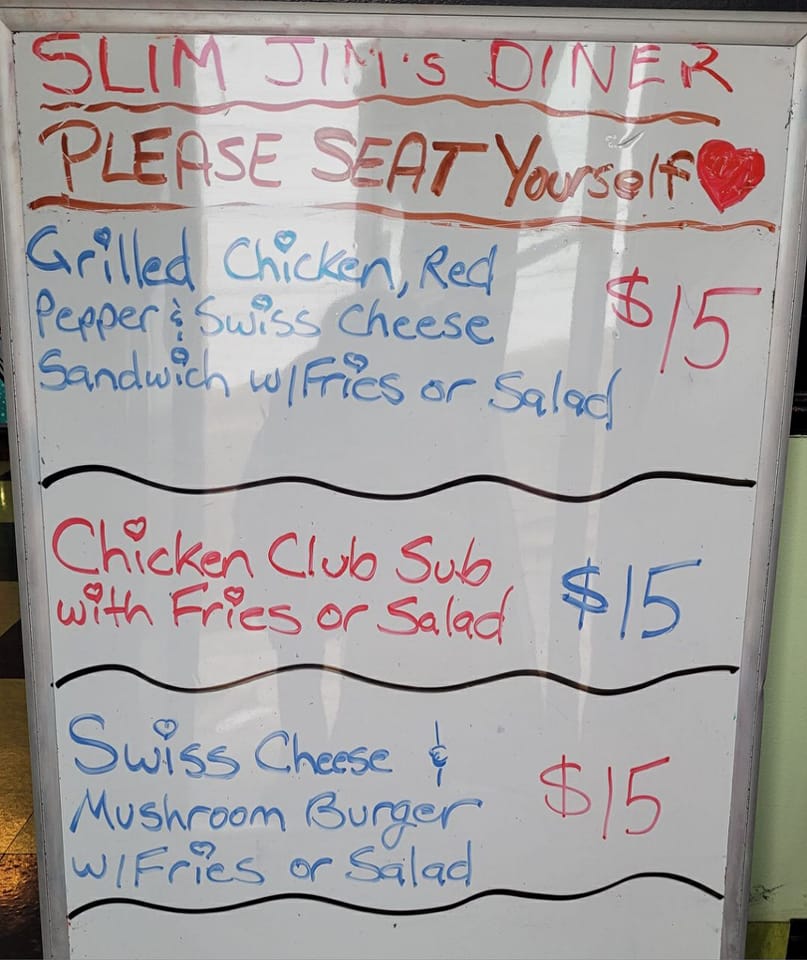 SLIM JIM's DINER
PLEASE SEAT Yourself
Grilled Chicken, Red
Pepper & Swiss Cheese
Sandwich w/Fries or Salad
$15
Chicken Club Sub
with Fries or Salad
$15
Swiss Cheese &
Mushroom Burger
w/Fries or Salad
$15